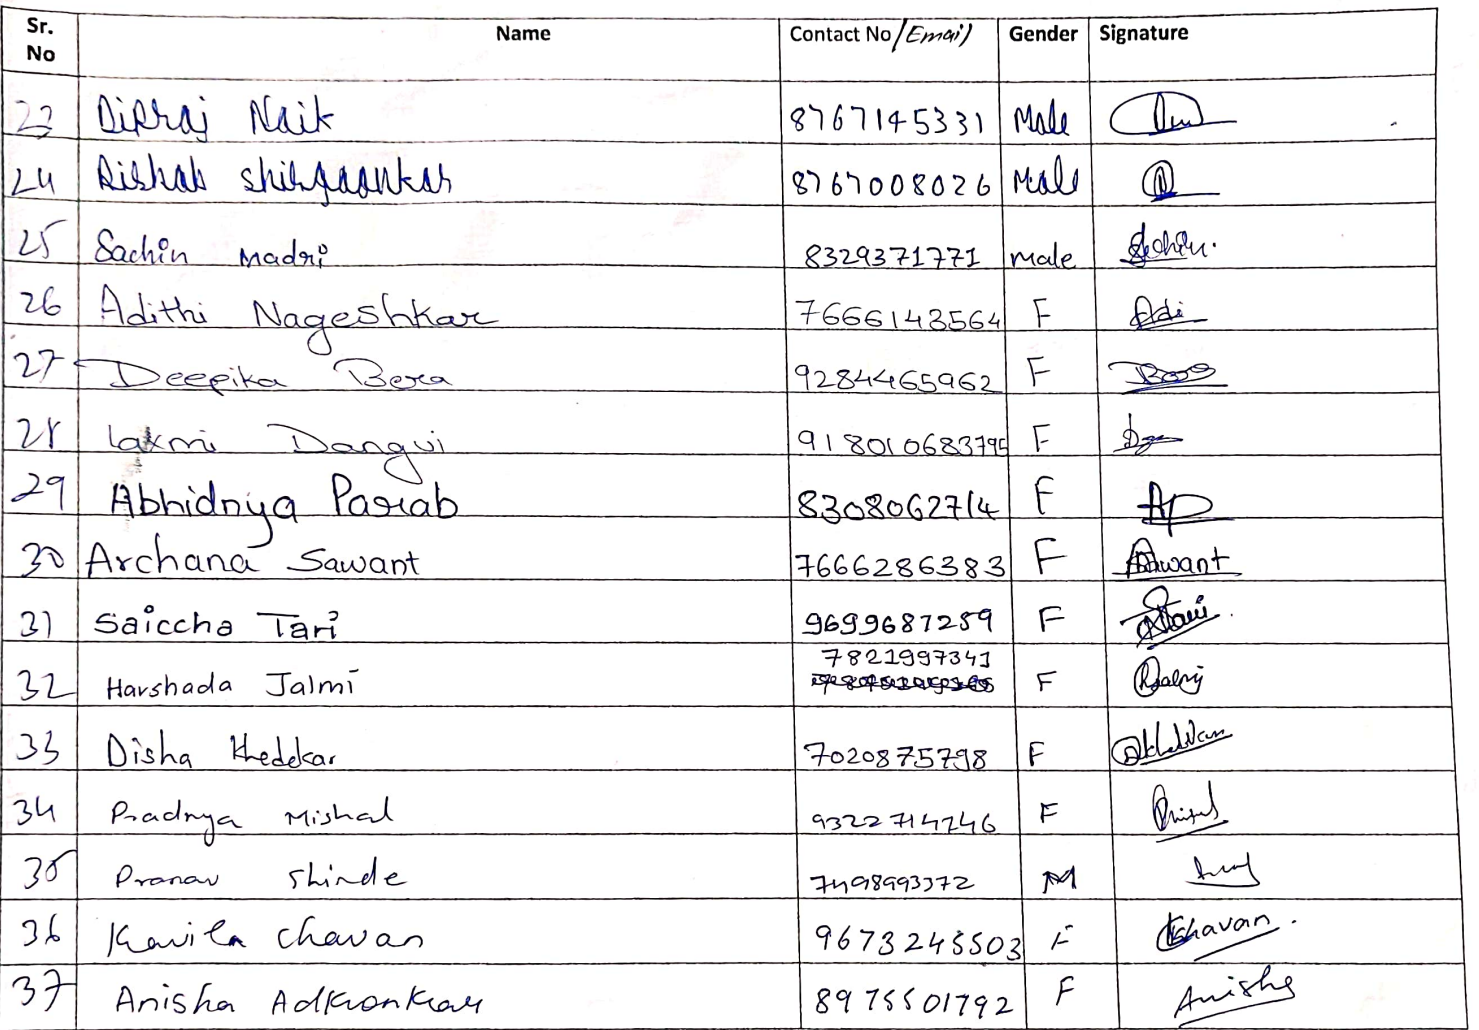 Sr. No Name Contact No/Email) Gender Signature
23 Dipraj Naik 8767145331 Male
24 Rishab shirgaonkar 8767008026 Male
25 Sachin Madri 8329371771 male Sachin.
26 Adithi Nageshkar 7666143564 F Adi
27 Deepika Bera 9284465962 F Bera
28 laxmi Dangui 918010683795 F
29 Abhidnya Parab 8308062714 F AP
30 Archana Sawant 7666286383 F ASawant
31 Saiccha Tari 9699687289 F STari.
7821997341
32 Harshada Jalmi F
33 Disha Khedekar 7020875798 F
34 Pradnya Mishal 9322714746 F
35 Pranav Shinde 7498993372 M
36 Kavita Chavan 9673245503 F KChavan.
37 Anisha Adkonkar 8975501792 F Anisha